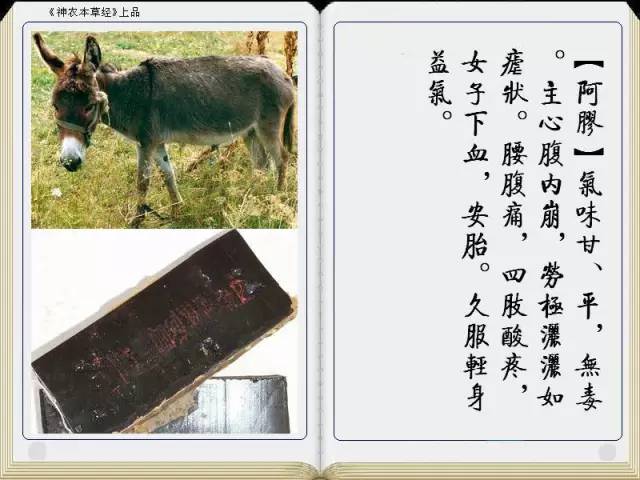 《神农本草经》上品
【阿膠】氣味甘、平，無毒
。主心腹内崩，勞極灑灑如
瘧狀。腰腹痛，四肢酸疼，
女子下血，安胎。久服輕身
益氣。